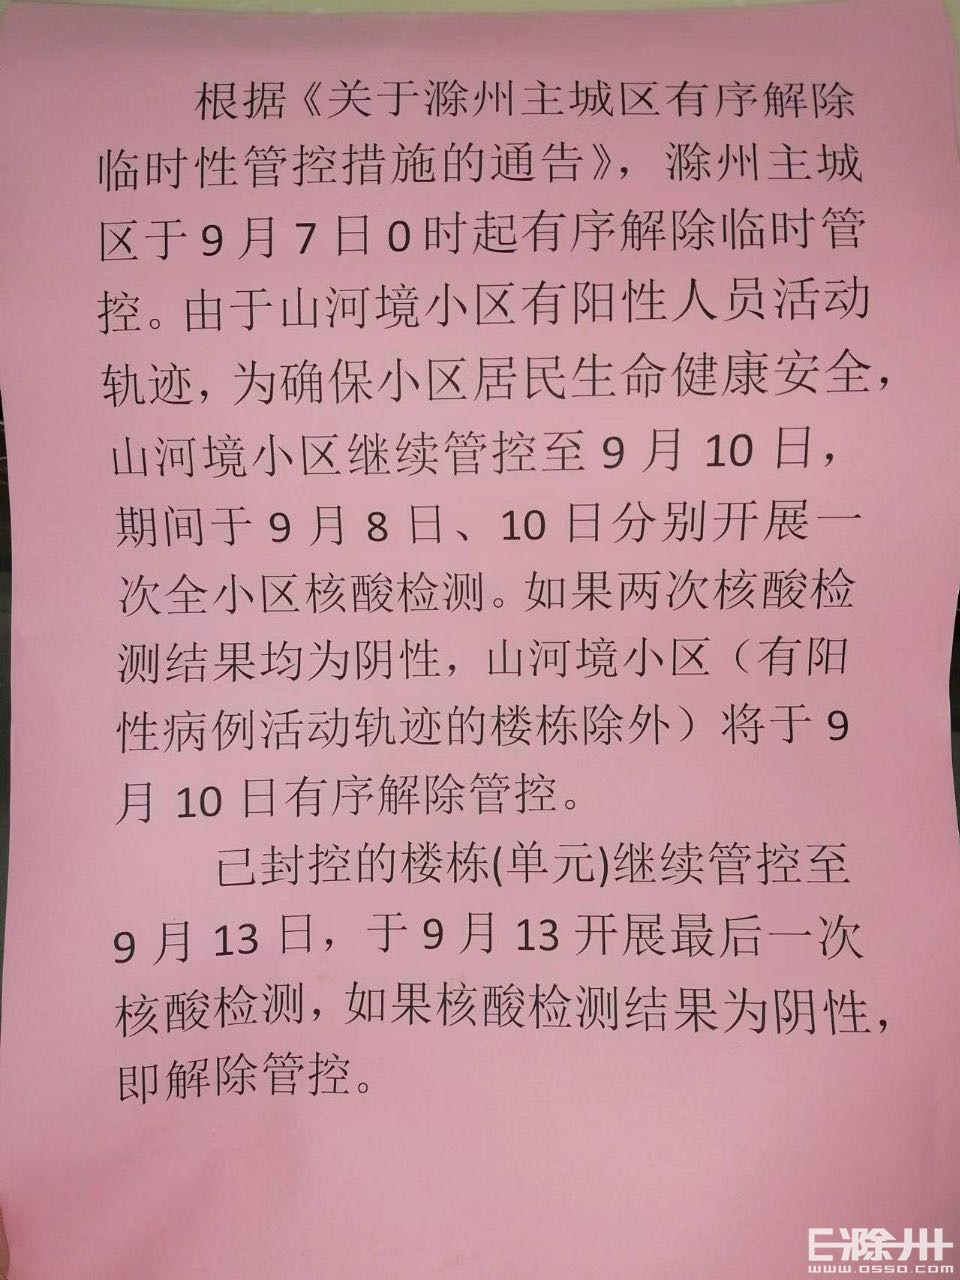 根据《关于滁州主城区有序解除
临时性管控措施的通告》，滁州主城
区于9月7日0时起有序解除临时管
控。由于山河境小区有阳性人员活动
轨迹，为确保小区居民生命健康安全，
山河境小区继续管控至9月10日，
期间于9月8日、10日分别开展一
次全小区核酸检测。如果两次核酸检
测结果均为阴性，山河境小区（有阳
性病例活动轨迹的楼栋除外）将于9
月10日有序解除管控。
已封控的楼栋(单元)继续管控至
9月13日，于9月13开展最后一次
核酸检测，如果核酸检测结果为阴性，
即解除管控。
E滁州
www.osso.com